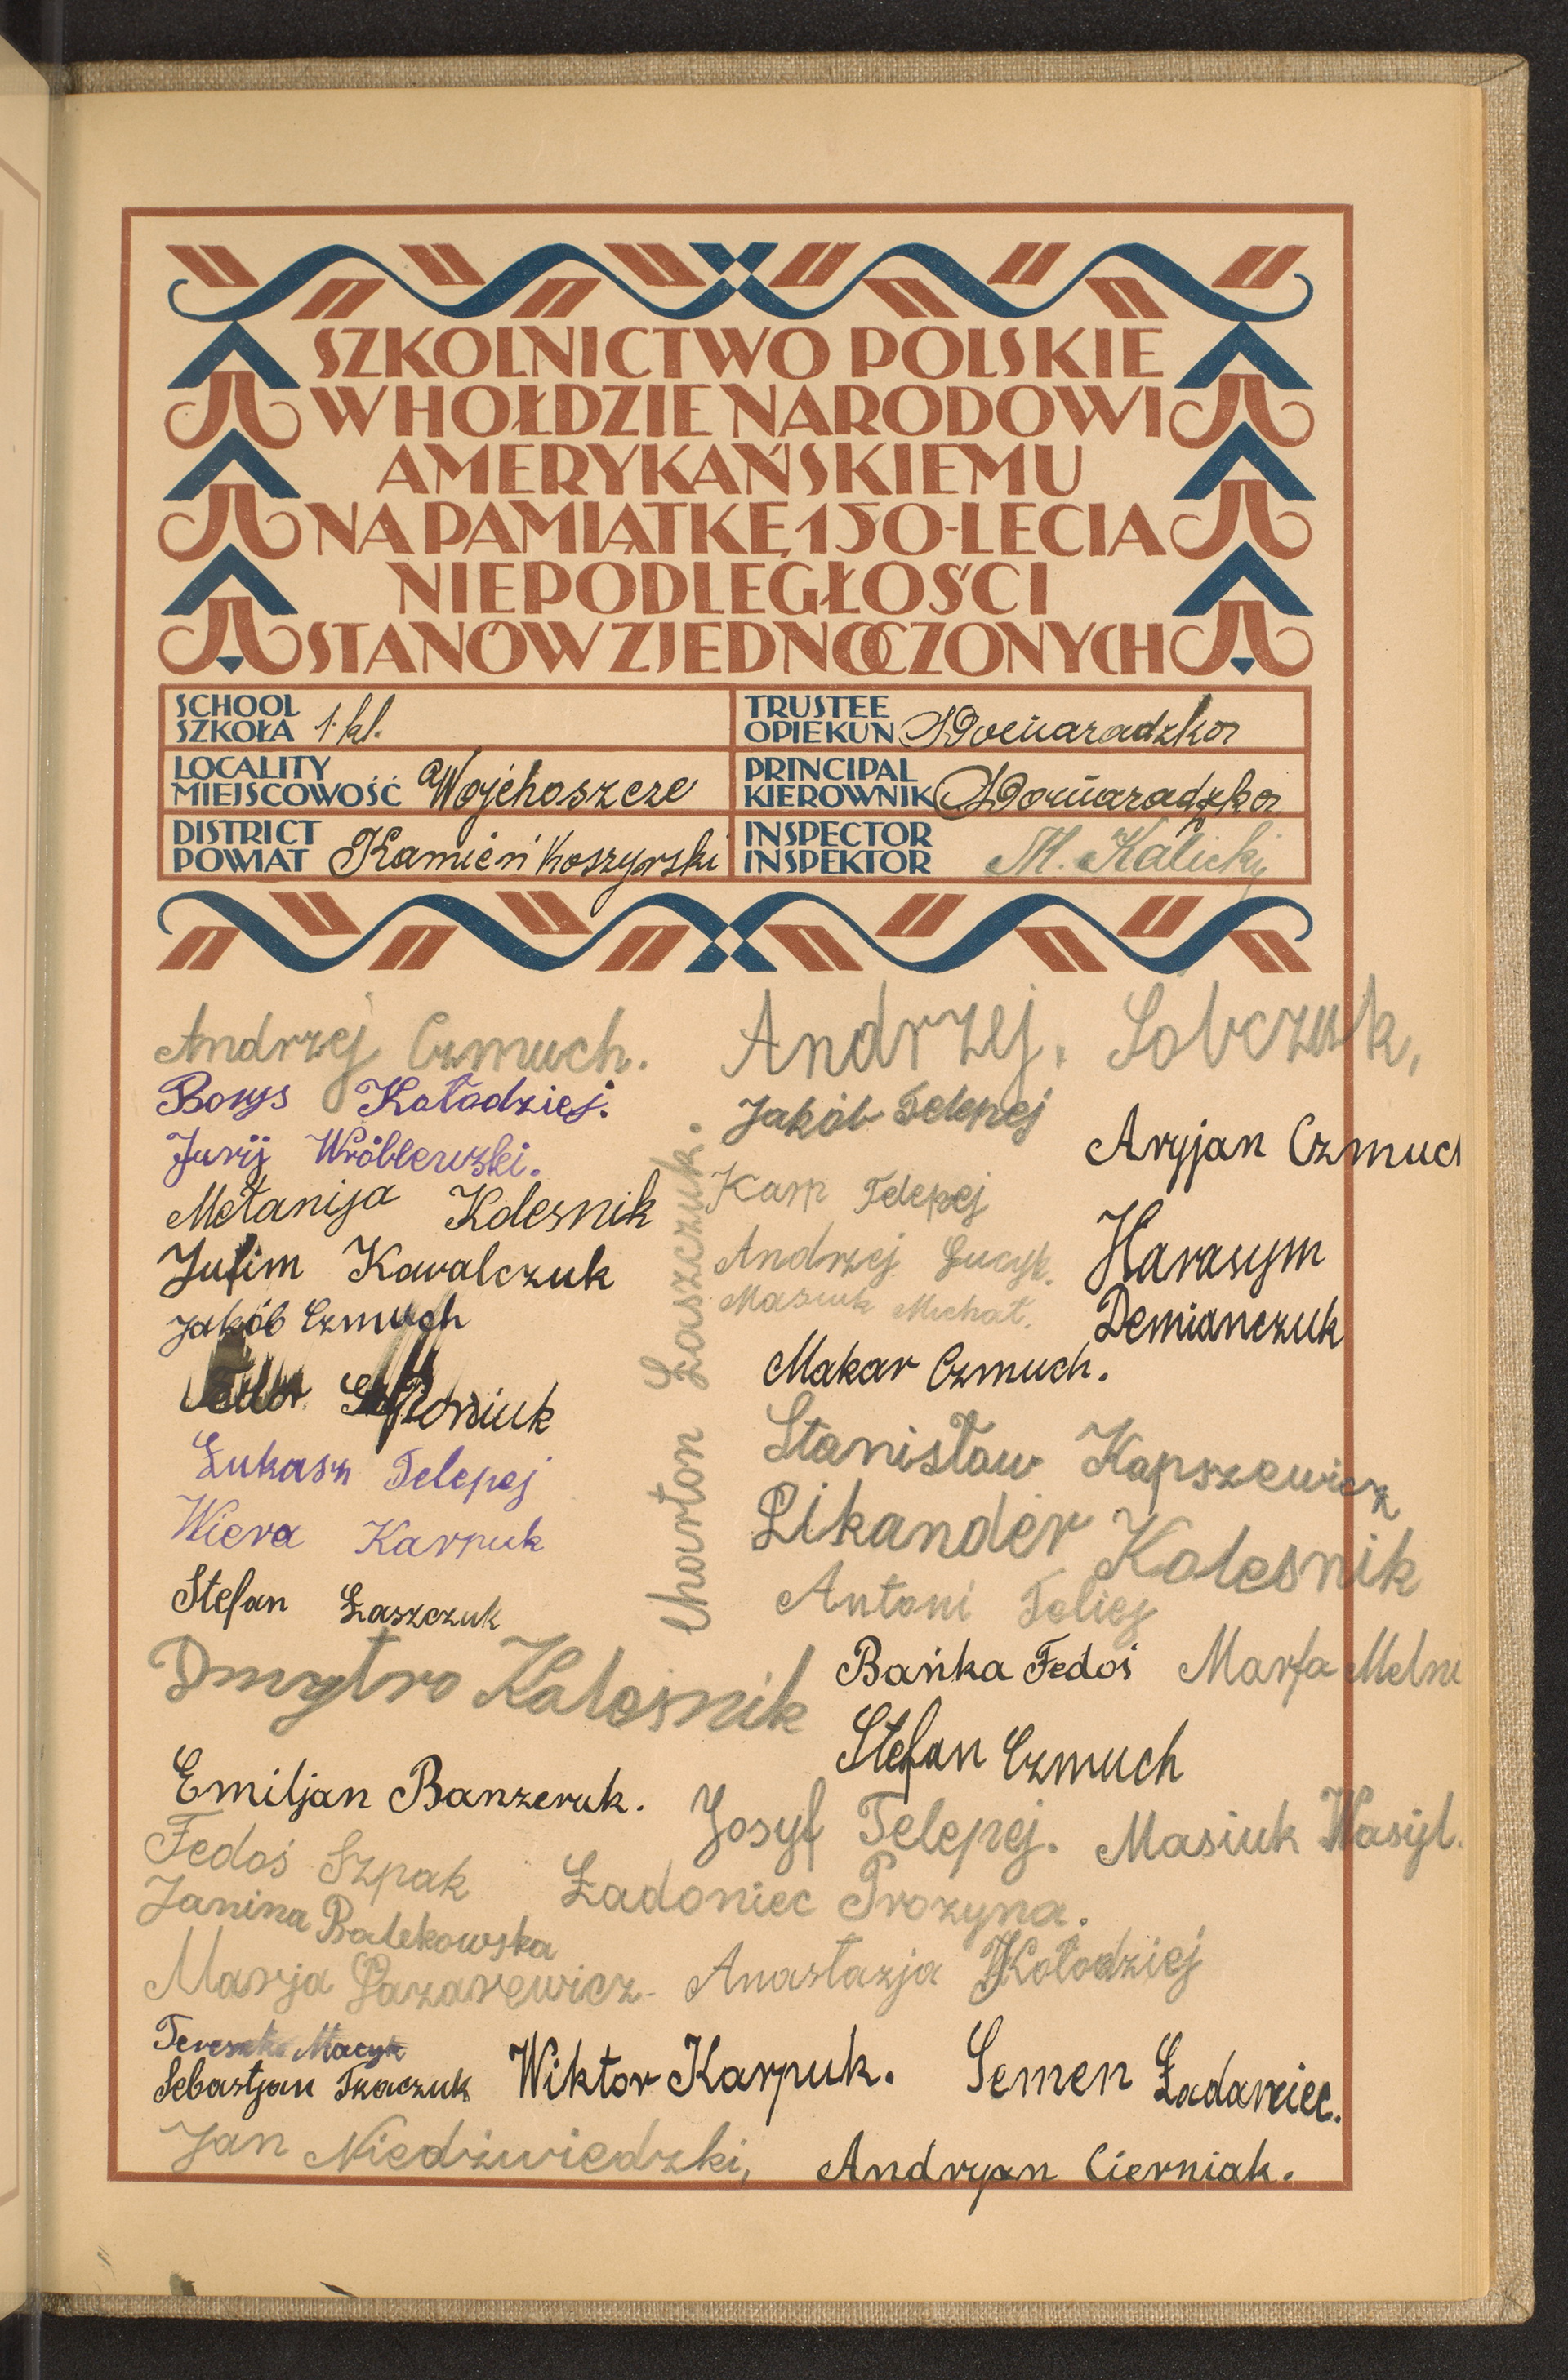 SZKOLNICTWO POLSKIE
W HOŁDZIE NARODOWI
AMERYKAŃSKIEMU
NA PAMIĄTKĘ 150-LECIA
NIEPODLEGŁOŚCI
STANÓW ZJEDNOCZONYCH
SCHOOL
SZKOŁA 1. kl.
TRUSTEE
OPIEKUN
LOCALITY
MIEJSCOWOŚĆ Wojehoszcze
PRINCIPAL
KIEROWNIK
DISTRICT
POWIAT Kamień Koszyrski
INSPECTOR
INSPEKTOR M. Kalicki
Andrzej Czmuch.
Borys Kołodziej.
Jurij Wróblewski.
Mełanija Kolesnik
Jufim Kawalczuk
Jakób Czmuch
Łukasz Telepej
Wiera Karpuk
Stefan Łaszczuk
Dmytro Kalesnik
Emiljan Banzeruk.
Fedoś Szpak
Janina Balekowska
Marja Łazarewicz
Macyk
Sebastjan Tkaczuk
Jan Niedźwiedzki,
Charton Łaszczuk.
Andrzej. Sobczuk,
Jakób Telepej
Karp Telepej
Andrzej Gucyk.
Masiuk Michał.
Aryjan Czmuch
Harasym
Demianczuk
Makar Czmuch.
Stanisław Kapszewicz
Likander Kolesnik
Antoni Teliej
Bańka Fedoś
Marfa Melni
Stefan Czmuch
Josyf Telepej.
Masiuk Wasyl.
Ładoniec Prozyna.
Anastazja Kołodziej
Wiktor Karpuk.
Semen Ładaniec.
Andryan Cierniak.